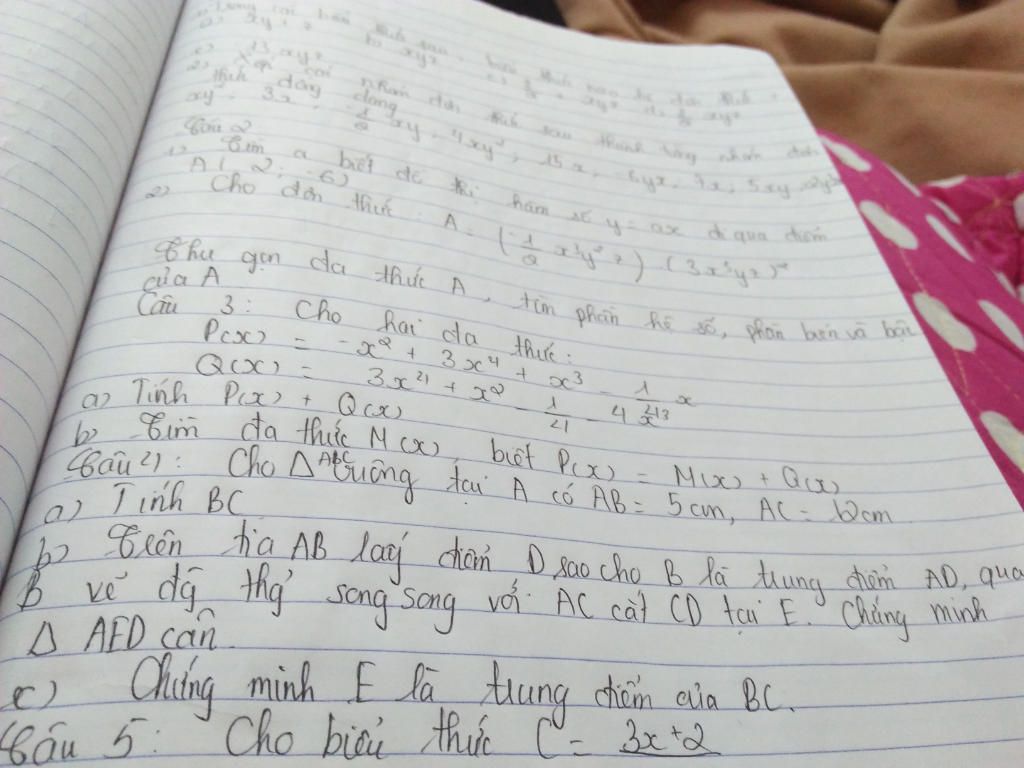 a, xy + z b, xyz
c) 13 xyz
thức đồng dạng
xy² . 3x , -1/2 xy , 4xy² , 15x , -6yx, 7x, 5xy
Câu 2
1) Tìm a biết đồ thị hàm số y = ax đi qua điểm
A( 2; -6)
2) Cho đơn thức : A = (-1/2 x³y²z) . (3x³yz)²
Thu gọn đa thức A, tìm phần hệ số, phần biến và bậc
của A
Câu 3 : Cho hai đa thức :
P(x) = -x² + 3x⁴ + x³ - 1/4 x
Q(x) = 3x⁴ + x² - 1/4 - 4x³
a) Tính P(x) + Q(x)
b, Tìm đa thức M(x), biết P(x) = M(x) + Q(x)
Câu 4 : Cho Δ ABC vuông tại A có AB = 5cm, AC = 12cm
a) Tính BC
b) Trên tia AB lấy điểm D sao cho B là trung điểm AD, qua
B vẽ đg thg song song với AC cắt CD tại E. Chứng minh
Δ AED cân.
c) Chứng minh E là trung điểm của BC.
Câu 5 : Cho biểu thức C = 3x+2